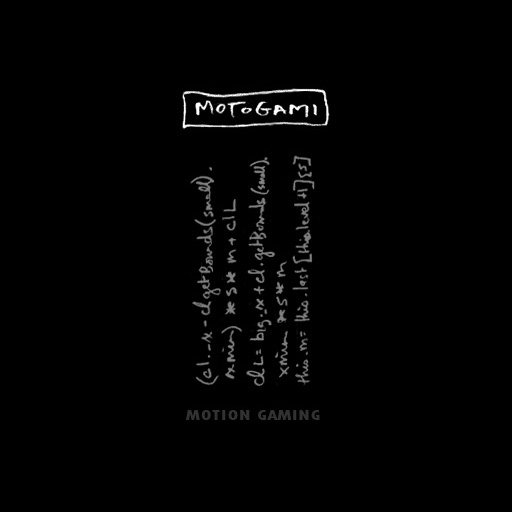 MOTOGAMI
(cl._x - cl.getBounds(small).
xmin) * s * m + clL
clL = big._x + cl.getBounds(small).
xmin * s * m
this.m = this.last[this.level+1][s]
MOTION GAMING